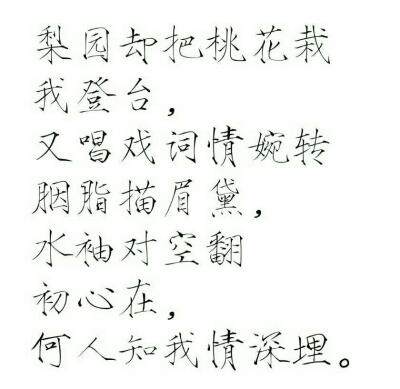 梨园却把桃花栽
我登台，
又唱戏词情婉转
胭脂描眉黛，
水袖对空翻
初心在，
何人知我情深埋。